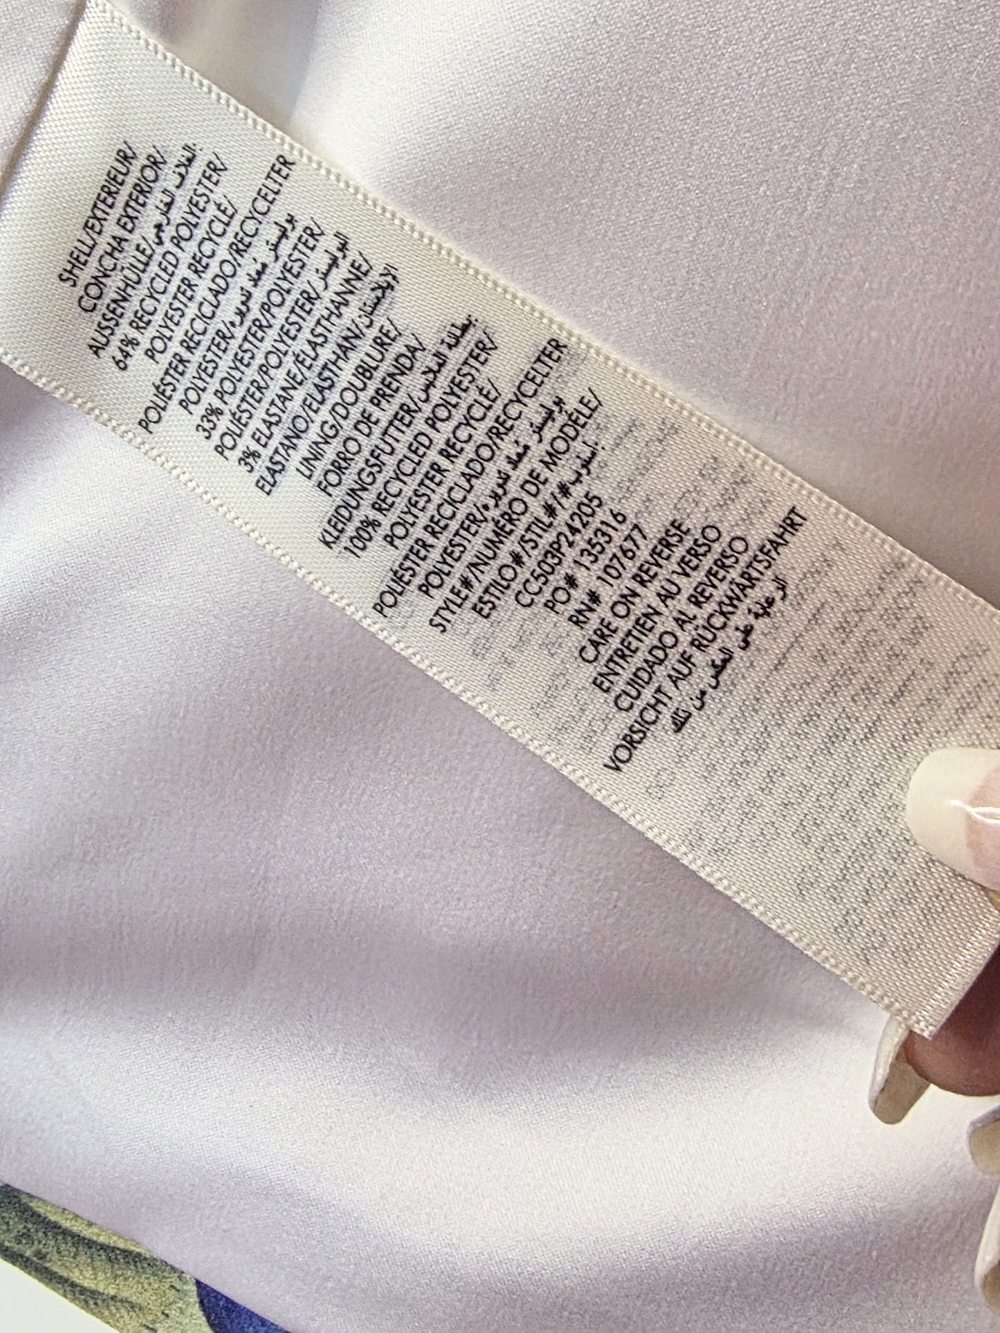 SHELL/EXTERIEUR/
CONCHA EXTERIOR/
AUSSENHÜLLE/الغلاف الخارجي:
64% RECYCLED POLYESTER/
POLYESTER RECYCLÉ/
POLIÉSTER RECICLADO/RECYCELTER
POLYESTER/بوليستر معاد تدويره
33% POLYESTER/POLYESTER/
POLIÉSTER/POLYESTER/البوليستر
3% ELASTANE/ÉLASTHANNE/
ELASTANO/ELASTHAN/الإيلاستان
LINING/DOUBLURE/
FORRO DE PRENDA/
KLEIDUNGSFUTTER/بطانة الملابس:
100% RECYCLED POLYESTER/
POLYESTER RECYCLÉ/
POLIÉSTER RECICLADO/RECYCELTER
POLYESTER/بوليستر معاد تدويره
STYLE#/NUMÉRO DE MODÈLE/
ESTILO#/STIL#/#أسلوب:
CC503P24205
PO# 135316
RN# 107677
CARE ON REVERSE
ENTRETIEN AU VERSO
CUIDADO AL REVERSO
VORSICHT AUF RÜCKWÄRTSFAHRT
الرعاية على العكس من ذلك